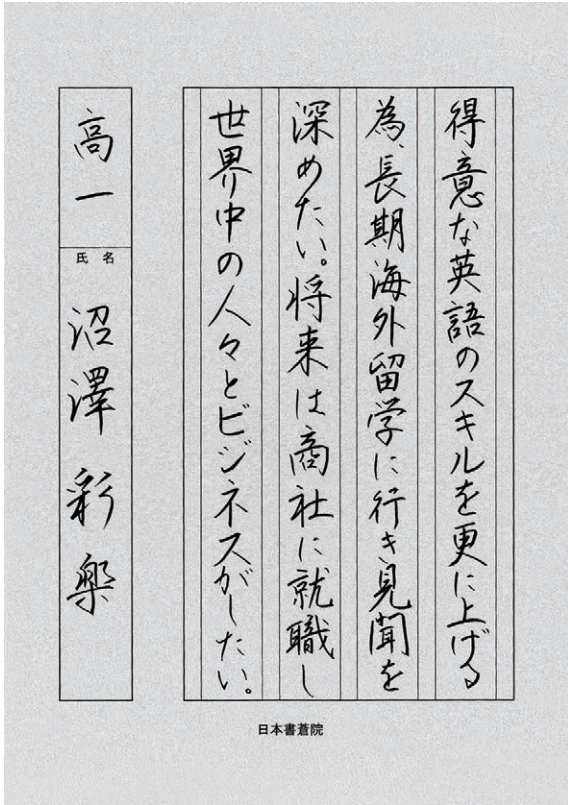 得意な英語のスキルを更に上げる
為、長期海外留学に行き見聞を
深めたい。将来は商社に就職し
世界中の人々とビジネスがしたい。
高一
氏名
沼澤彩楽
日本書蒼院